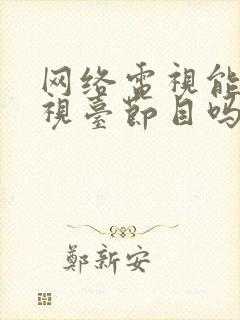 网络电視能
視臺節目吗
鄭新安